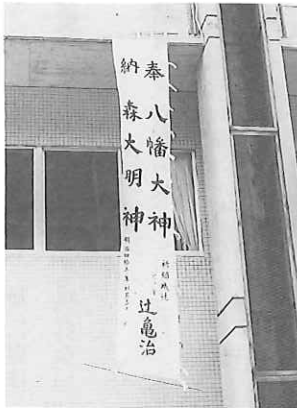 奉 八幡大神
納 森大明神
辻亀治